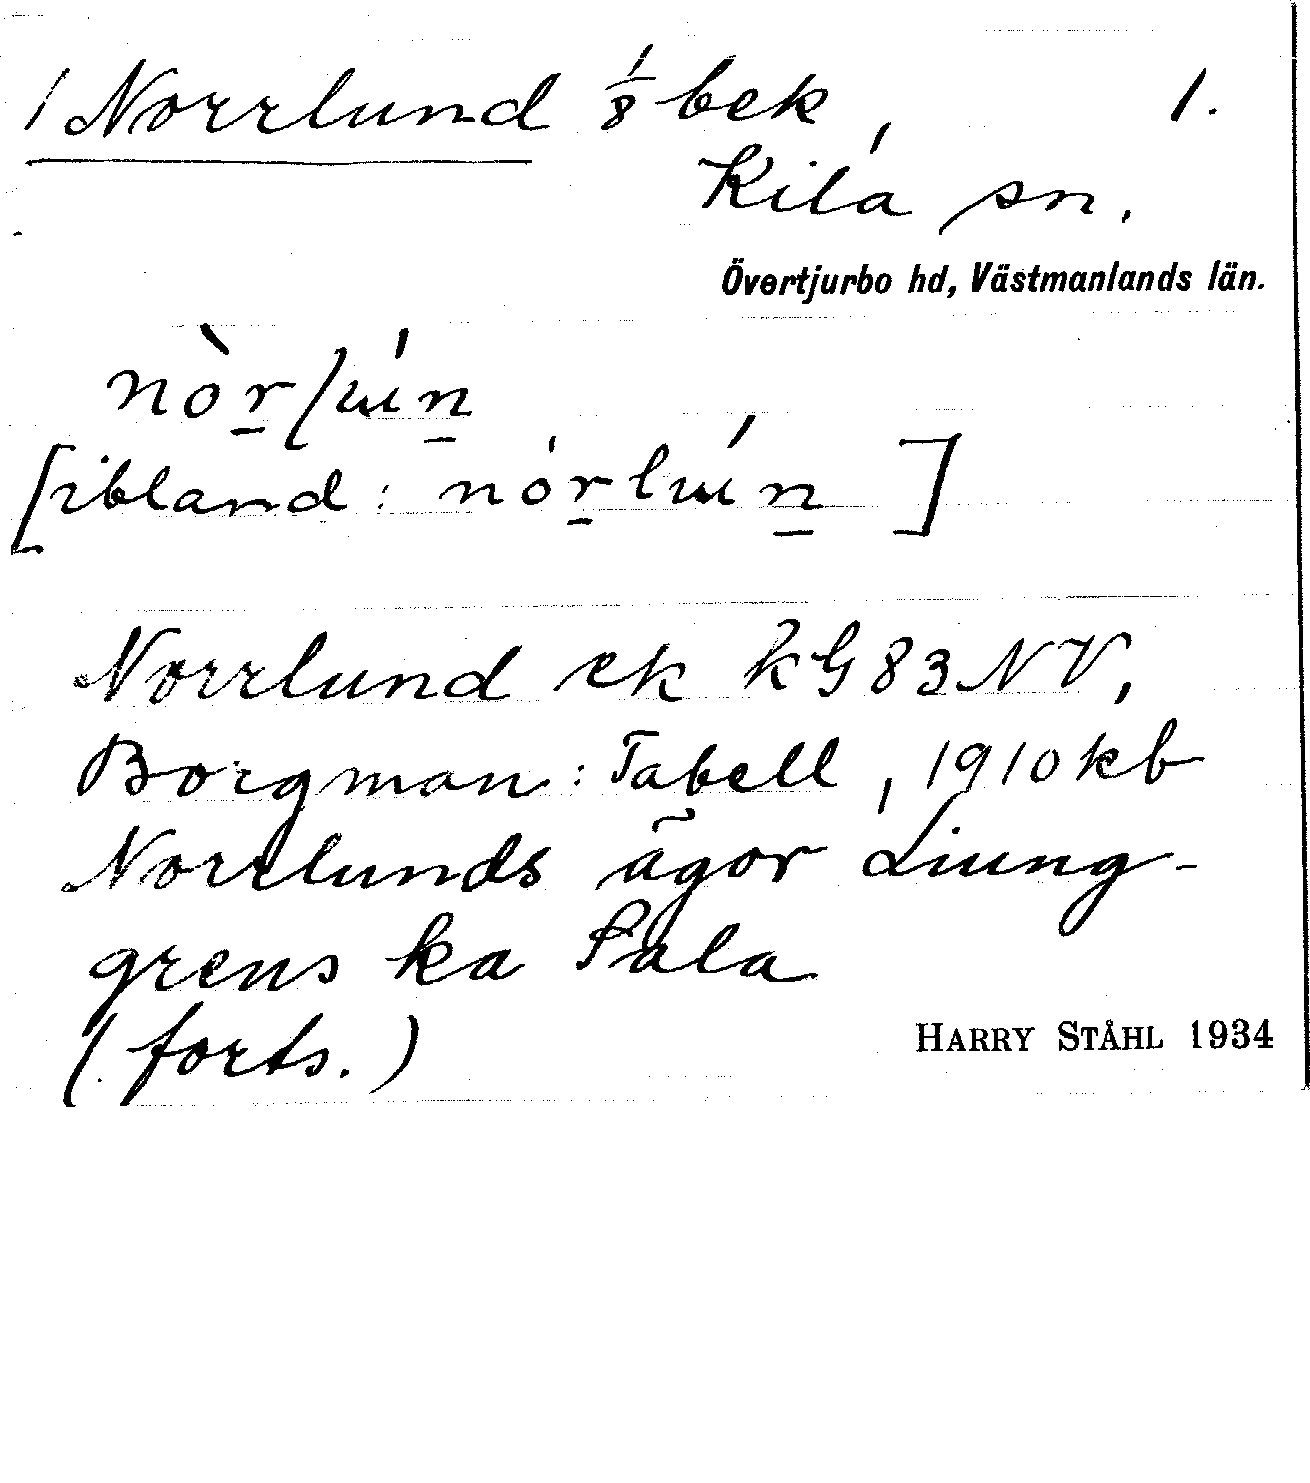 1 Norrlund 1/8 bek, 1.
Kila sn.
Övertjurbo hd, Västmanlands län.
[ibland:
Norrlund ek kG 83 NV,
Borgman: Tabell, 1910 kb
Norrlunds ägor Liung-
grens ka Sala
(forts.)
HARRY STÅHL 1934